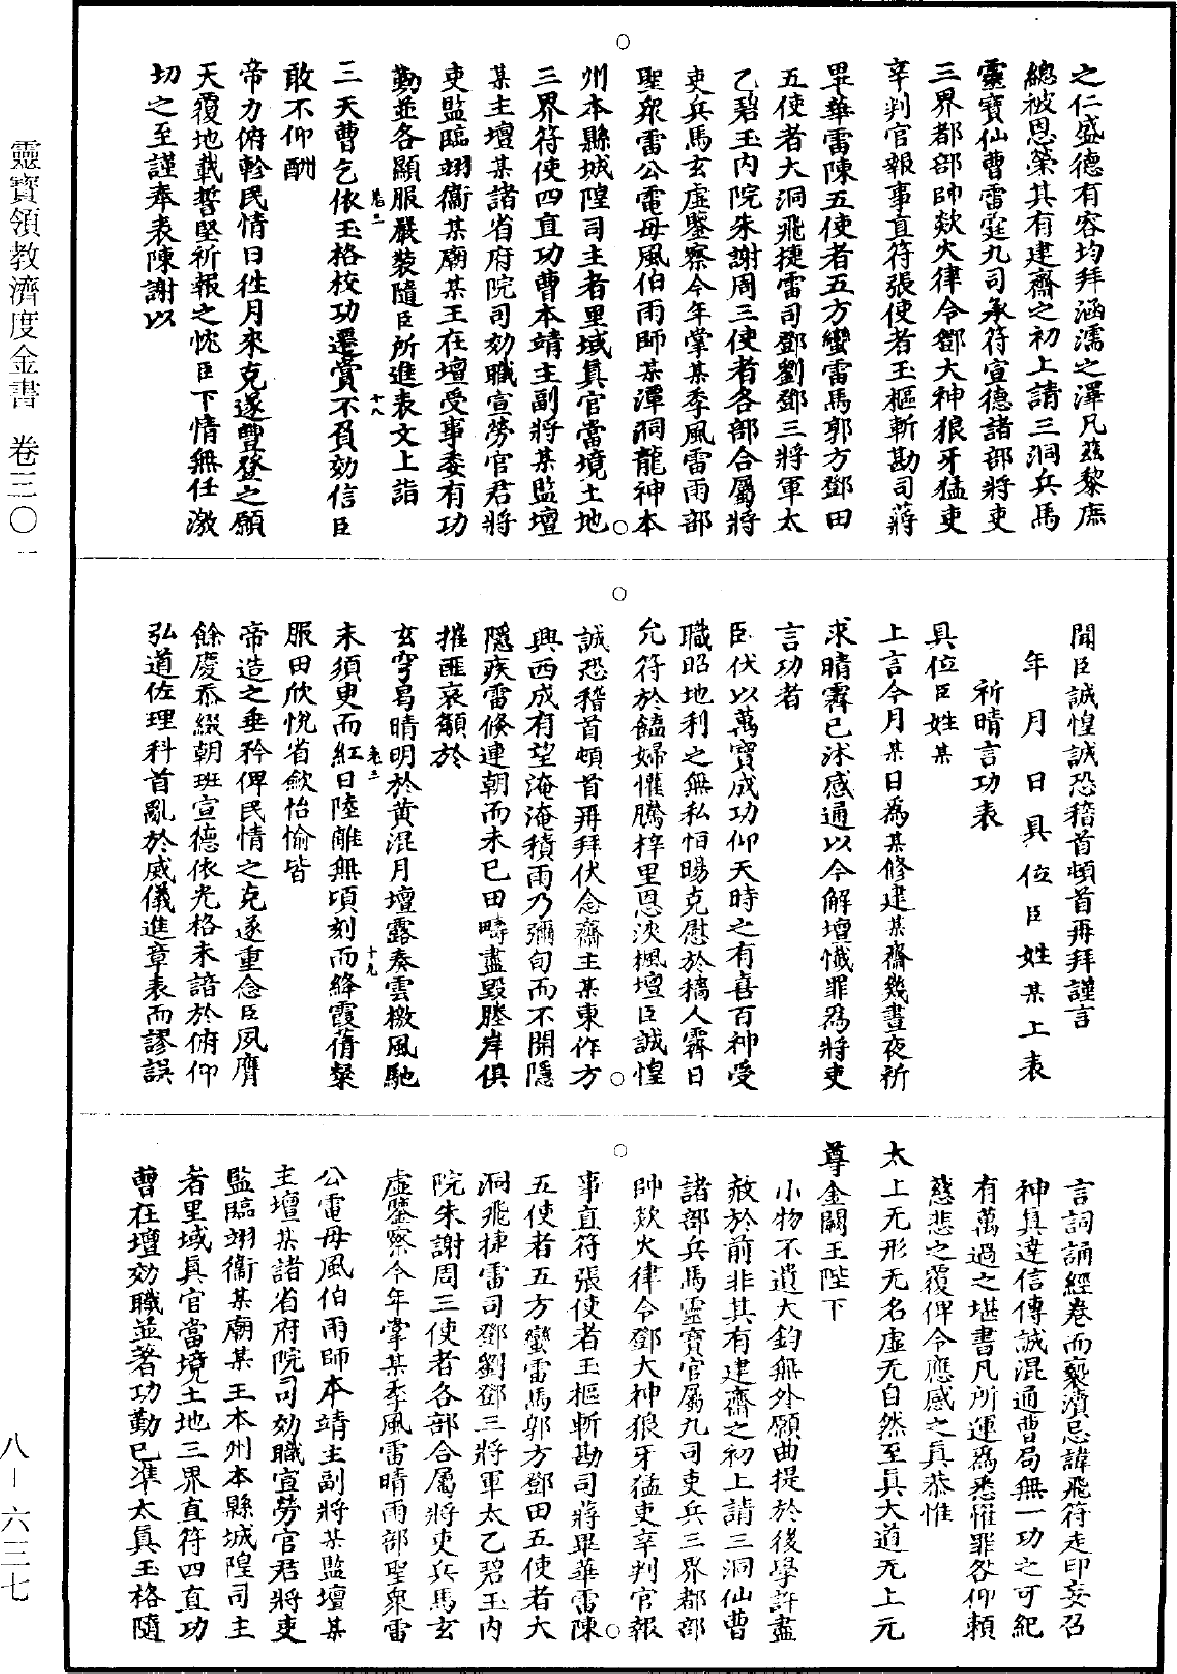 之仁盛德有容均拜涵濡之澤凡茲黎庶
總被恩榮其有建齋之初上請三洞兵馬
靈寶仙曹雷霆九司承符宣德諸部將吏
三界都部帥欻火律令鄧大神狼牙猛吏
辛判官報事直符張使者玉樞斬勘司蔣
畢華雷陳五使者五方蠻雷馬郭方鄧田
五使者大洞飛捷雷司鄧劉鄧三將軍太
乙碧玉內院朱謝周三使者各部合屬將
吏兵馬玄虛鑒察今年掌某季風雷雨部
聖衆雷公電母風伯雨師某潭洞龍神本
州本縣城隍司主者里域真官當境土地
三界符使四直功曹本靖主副將某監壇
某主壇某諸省府院司効職宣勞官君將
吏監臨翊衞某廟某王在壇受事委有功
勤並各顯服嚴裝隨臣所進表文上詣
卷三
十八
三天曹乞依玉格校功遷賞不負効信臣
敢不仰酬
帝力俯軫民情日徃月來克遂豐登之願
天覆地載誓堅祈報之忱臣下情無任激
切之至謹奉表陳謝以
聞臣誠惶誠恐稽首頓首再拜謹言
年月日具位臣姓某上表
祈晴言功表
具位臣姓某
上言今月某日爲某修建某齋幾晝夜祈
求晴霽已沐感通以今解壇懺罪爲將吏
言功者
臣伏以萬寶成功仰天時之有喜百神受
職昭地利之無私怕暘克慰於穡人霽日
允符於饁婦懽騰梓里恩浹楓壇臣誠惶
誠恐稽首頓首再拜伏念齋主某東作方
興西成有望淹淹積雨乃彌旬而不開隱
隱疾雷倐連朝而未已田疇盡毀塍岸俱
摧匪哀籲於
玄穹曷晴明於黄混月壇露奏雲檄風馳
卷三
十九
未須臾而紅日陸離無頃刻而絳霞蒨粲
服田欣悅省歛怡愉皆
帝造之垂矜俾民情之克遂重念臣夙膺
餘慶忝綴朝班宣德依光格未諳於俯仰
弘道佐理科首亂於威儀進章表而謬誤
言詞誦經卷而褻瀆忌諱飛符走印妄召
神真達信傳誠混通曹局無一功之可紀
有萬過之堪書凡所運爲悉懼罪咎仰賴
慈悲之覆俾令應感之真恭惟
太上无形无名虛无自然至真大道无上元
尊金闕玉陛下
小物不遺大鈞無外願曲提於後學許盡
赦於前非其有建齋之初上請三洞仙曹
諸部兵馬靈寶官屬九司吏兵三界都部
帥欻火律令鄧大神狼牙猛吏辛判官報
事直符張使者玉樞斬勘司蔣畢華雷陳
五使者五方蠻雷馬郭方鄧田五使者大
洞飛捷雷司鄧劉鄧三將軍太乙碧玉內
院朱謝周三使者各部合屬將吏兵馬玄
虛鑒察今年掌某季風雷晴雨部聖衆雷
公電母風伯雨師本靖主副將某監壇某
主壇某諸省府院司効職宣勞官君將吏
監臨翊衞某廟某王本州本縣城隍司主
者里域真官當境土地三界直符四直功
曹在壇効職並著功勤已準太真玉格隨
靈寶領教濟度金書　卷三〇一
八—六三七